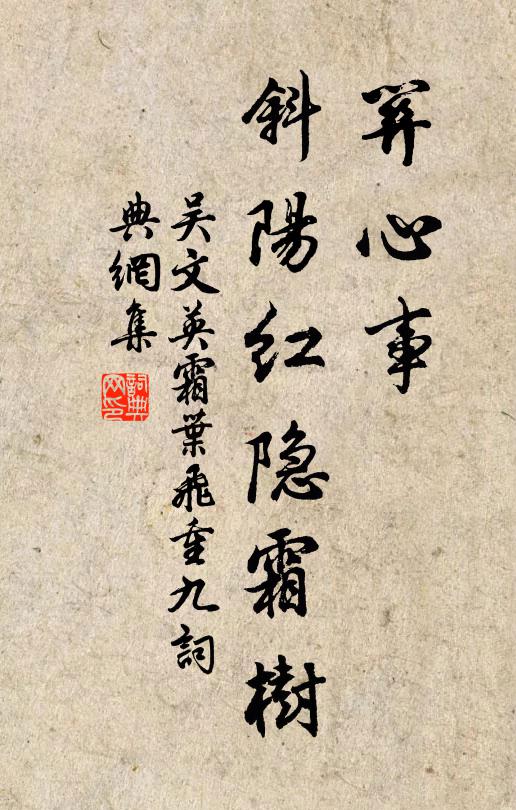 關心事
斜陽红隐霜樹
吴文英霜葉飛重九詞
典網集
詞典
网印